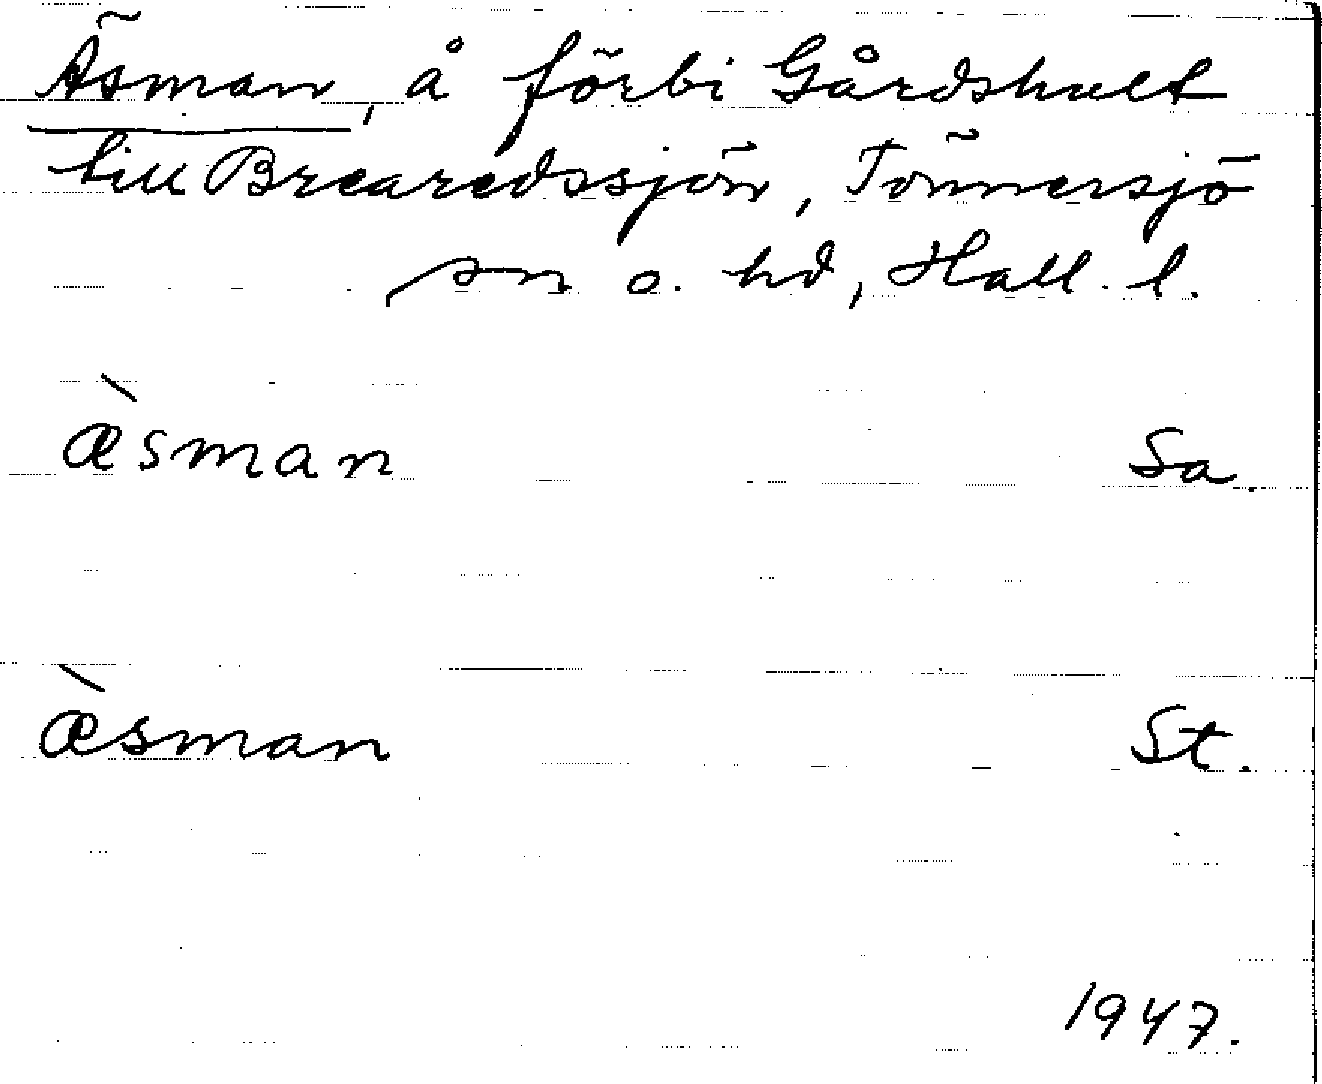 Äsman, å förbi Gårdshult
till Brearedssjön, Tönnersjö
sn o. hd, Hall. l.
æ̀sman Sa.
æ̀sman St.
1947.